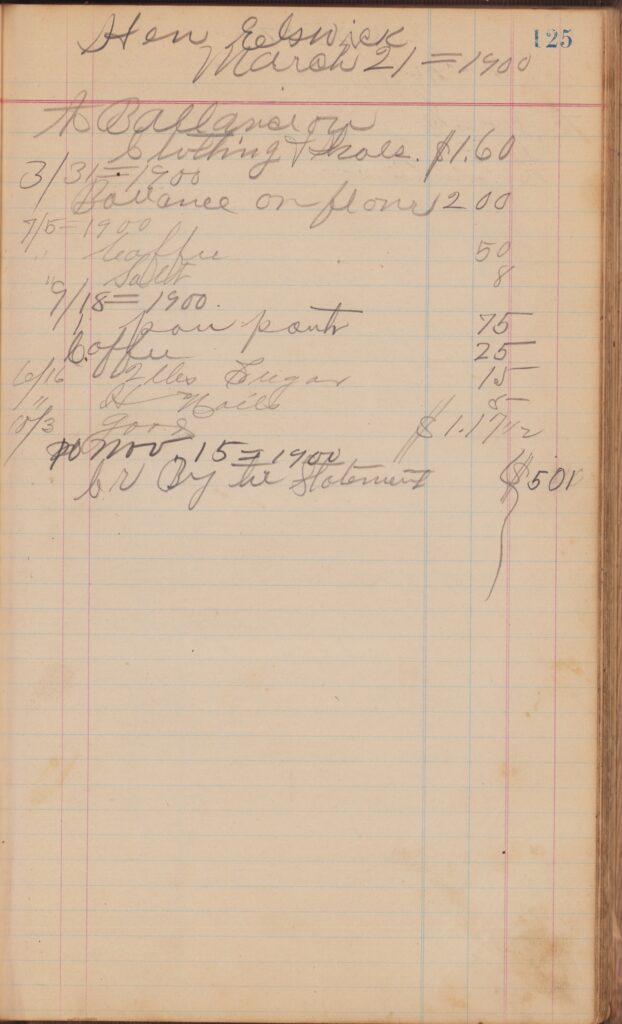 125
Hen Elswick
March 21 = 1900
To Ballance on
Clothing & Shoes. $1.60
3/31 = 1900
Ballance on flour 2 00
7/5 = 1900
" Coffee 50
" Salt 8
9/18 = 1900
1 pair pants 75
Coffee 25
6/16 2 lbs Sugar 15
" Nails 5
10/3 goods $1.17 1/2
Nov. 15 = 1900
Cr By the Statement $501